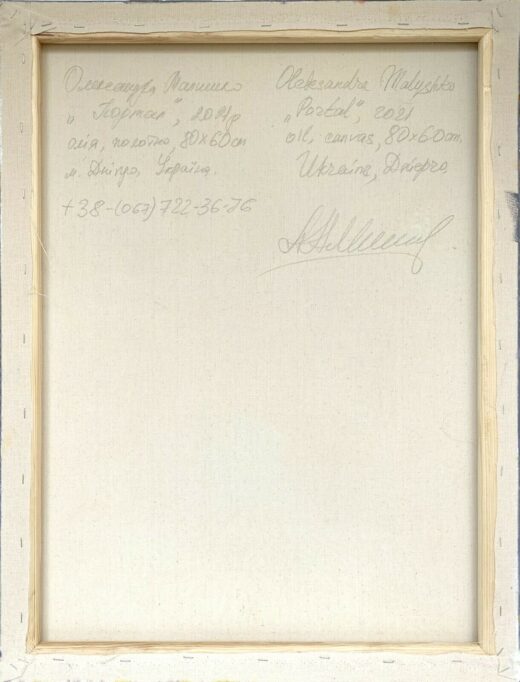 Олександра Малишко
„Портал", 2021р
олія, полотно, 80х60см
м. Дніпро, Україна.
+38-(067)722-36-76
Oleksandra Malyshko
„Portal", 2021
oil, canvas, 80x60cm.
Ukraine, Dniepro